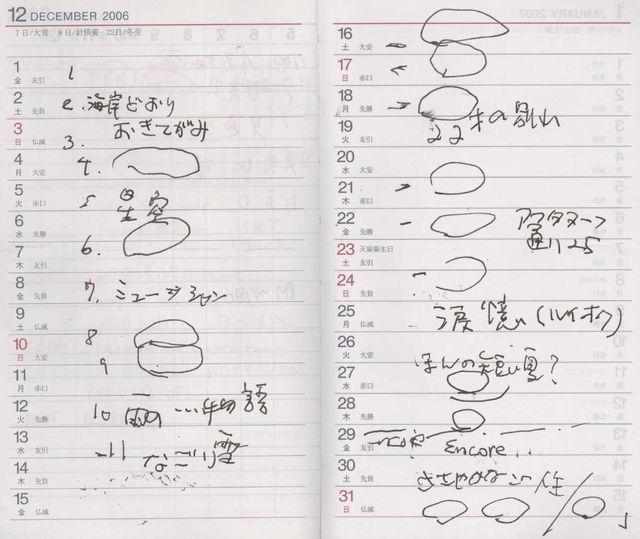 12 DECEMBER 2006
7日/大雪 8日/針供養 22日/冬至
1 金 友引 1.
2 土 先負 2. 海岸どおり
おきてがみ
3 日 仏滅 3.
4 月 大安 4.
5 火 赤口 5 星空
6 水 先勝
7 木 友引 6.
8 金 先負 7. ミュージシャン
9 土 仏滅 8
10 日 大安 9
11 月 赤口
12 火 先勝 10 雨の…物語
13 水 友引 11 なごり雪
14 木 先負
15 金 仏滅
16 土 大安
17 日 赤口
18 月 先勝
19 火 友引 22才の別れ
20 水 大安
21 木 赤口
22 金 先勝
23 土 友引 天皇誕生日
24 日 先負
25 月 仏滅
26 火 大安 ほんの短い夏?
27 水 赤口
28 木 先勝
29 金 友引 Encore..
30 土 先負 ささやかなこの人生
31 日 仏滅